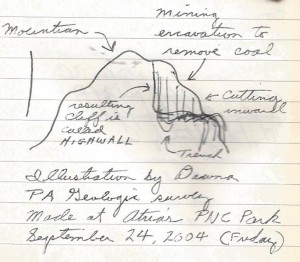 Mountian
Mining
excavation to
remove coal
Cutting
inward
resulting
cliff is
called
HIGHWALL
Trench
Illustration by Deanna
PA Geologic survey
Made at Atria's PNC Park
September 24, 2004 (Friday)